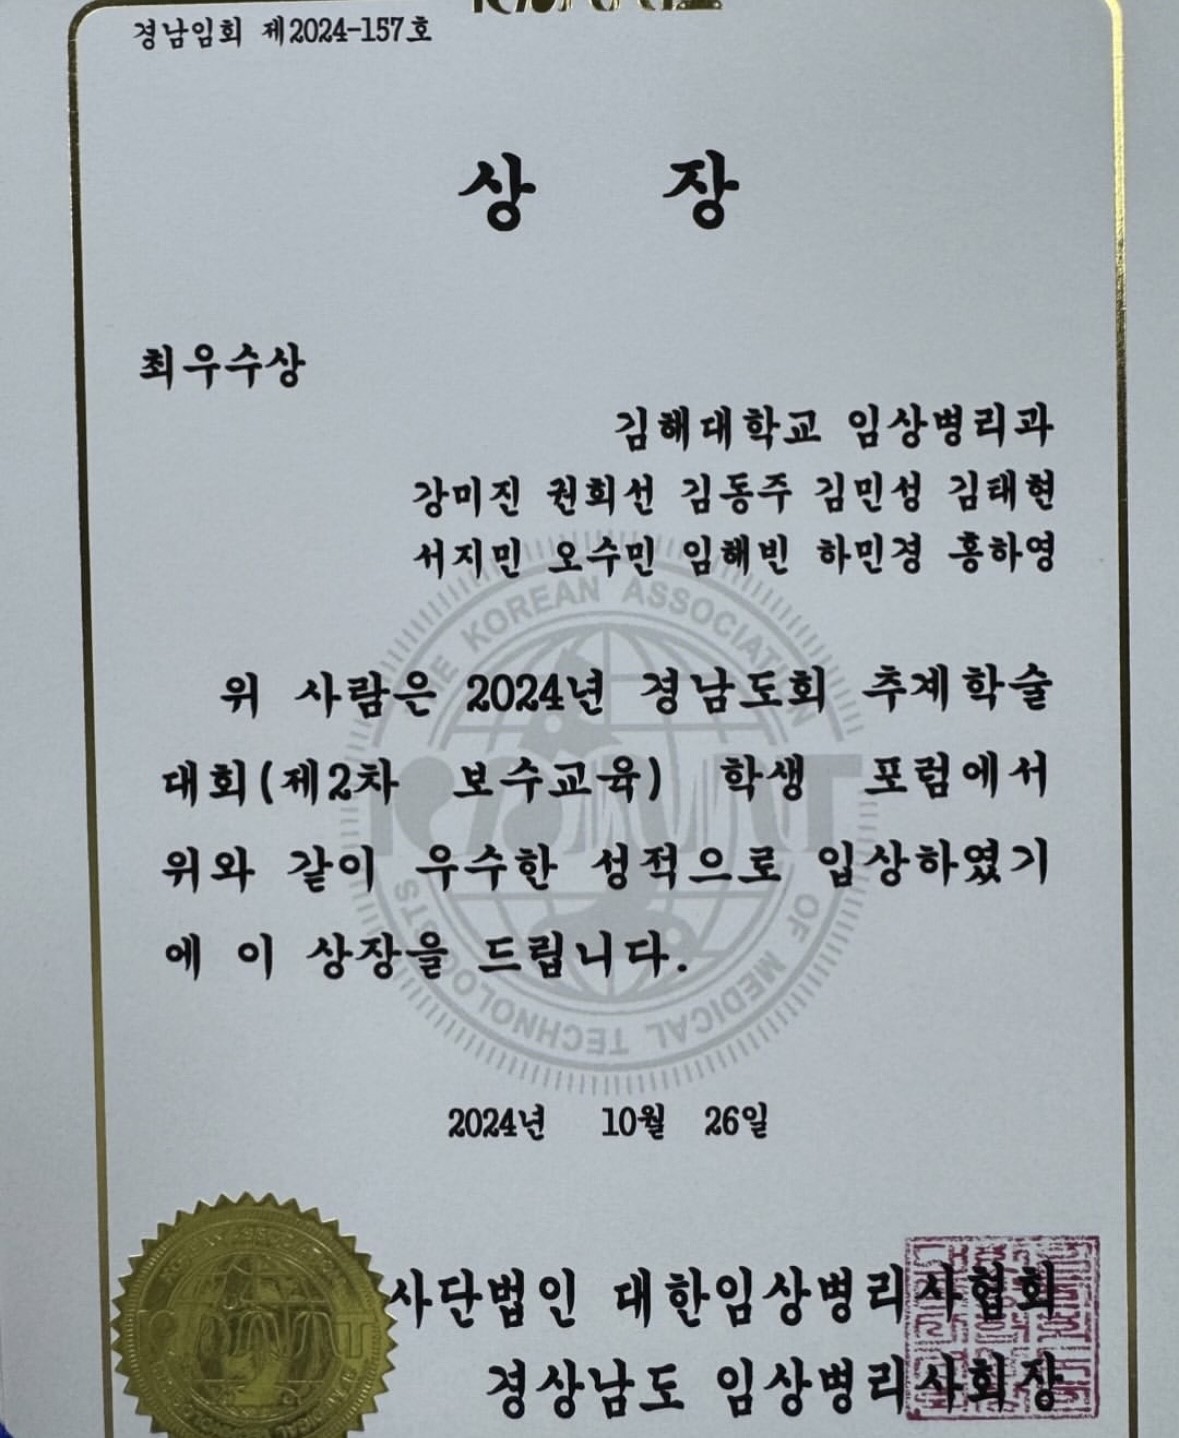 경남임회 제2024-157호
상 장
최우수상
김해대학교 임상병리과
강미진 권회선 김동주 김민성 김태현
서지민 오수민 임해빈 하민경 홍하영
위 사람은 2024년 경남도회 추계학술
대회(제2차 보수교육) 학생 포럼에서
위와 같이 우수한 성적으로 입상하였기
에 이 상장을 드립니다.
THE KOREAN ASSOCIATION OF MEDICAL TECHNOLOGISTS
2024년 10월 26일
사단법인 대한임상병리사협회
경상남도 임상병리사회장